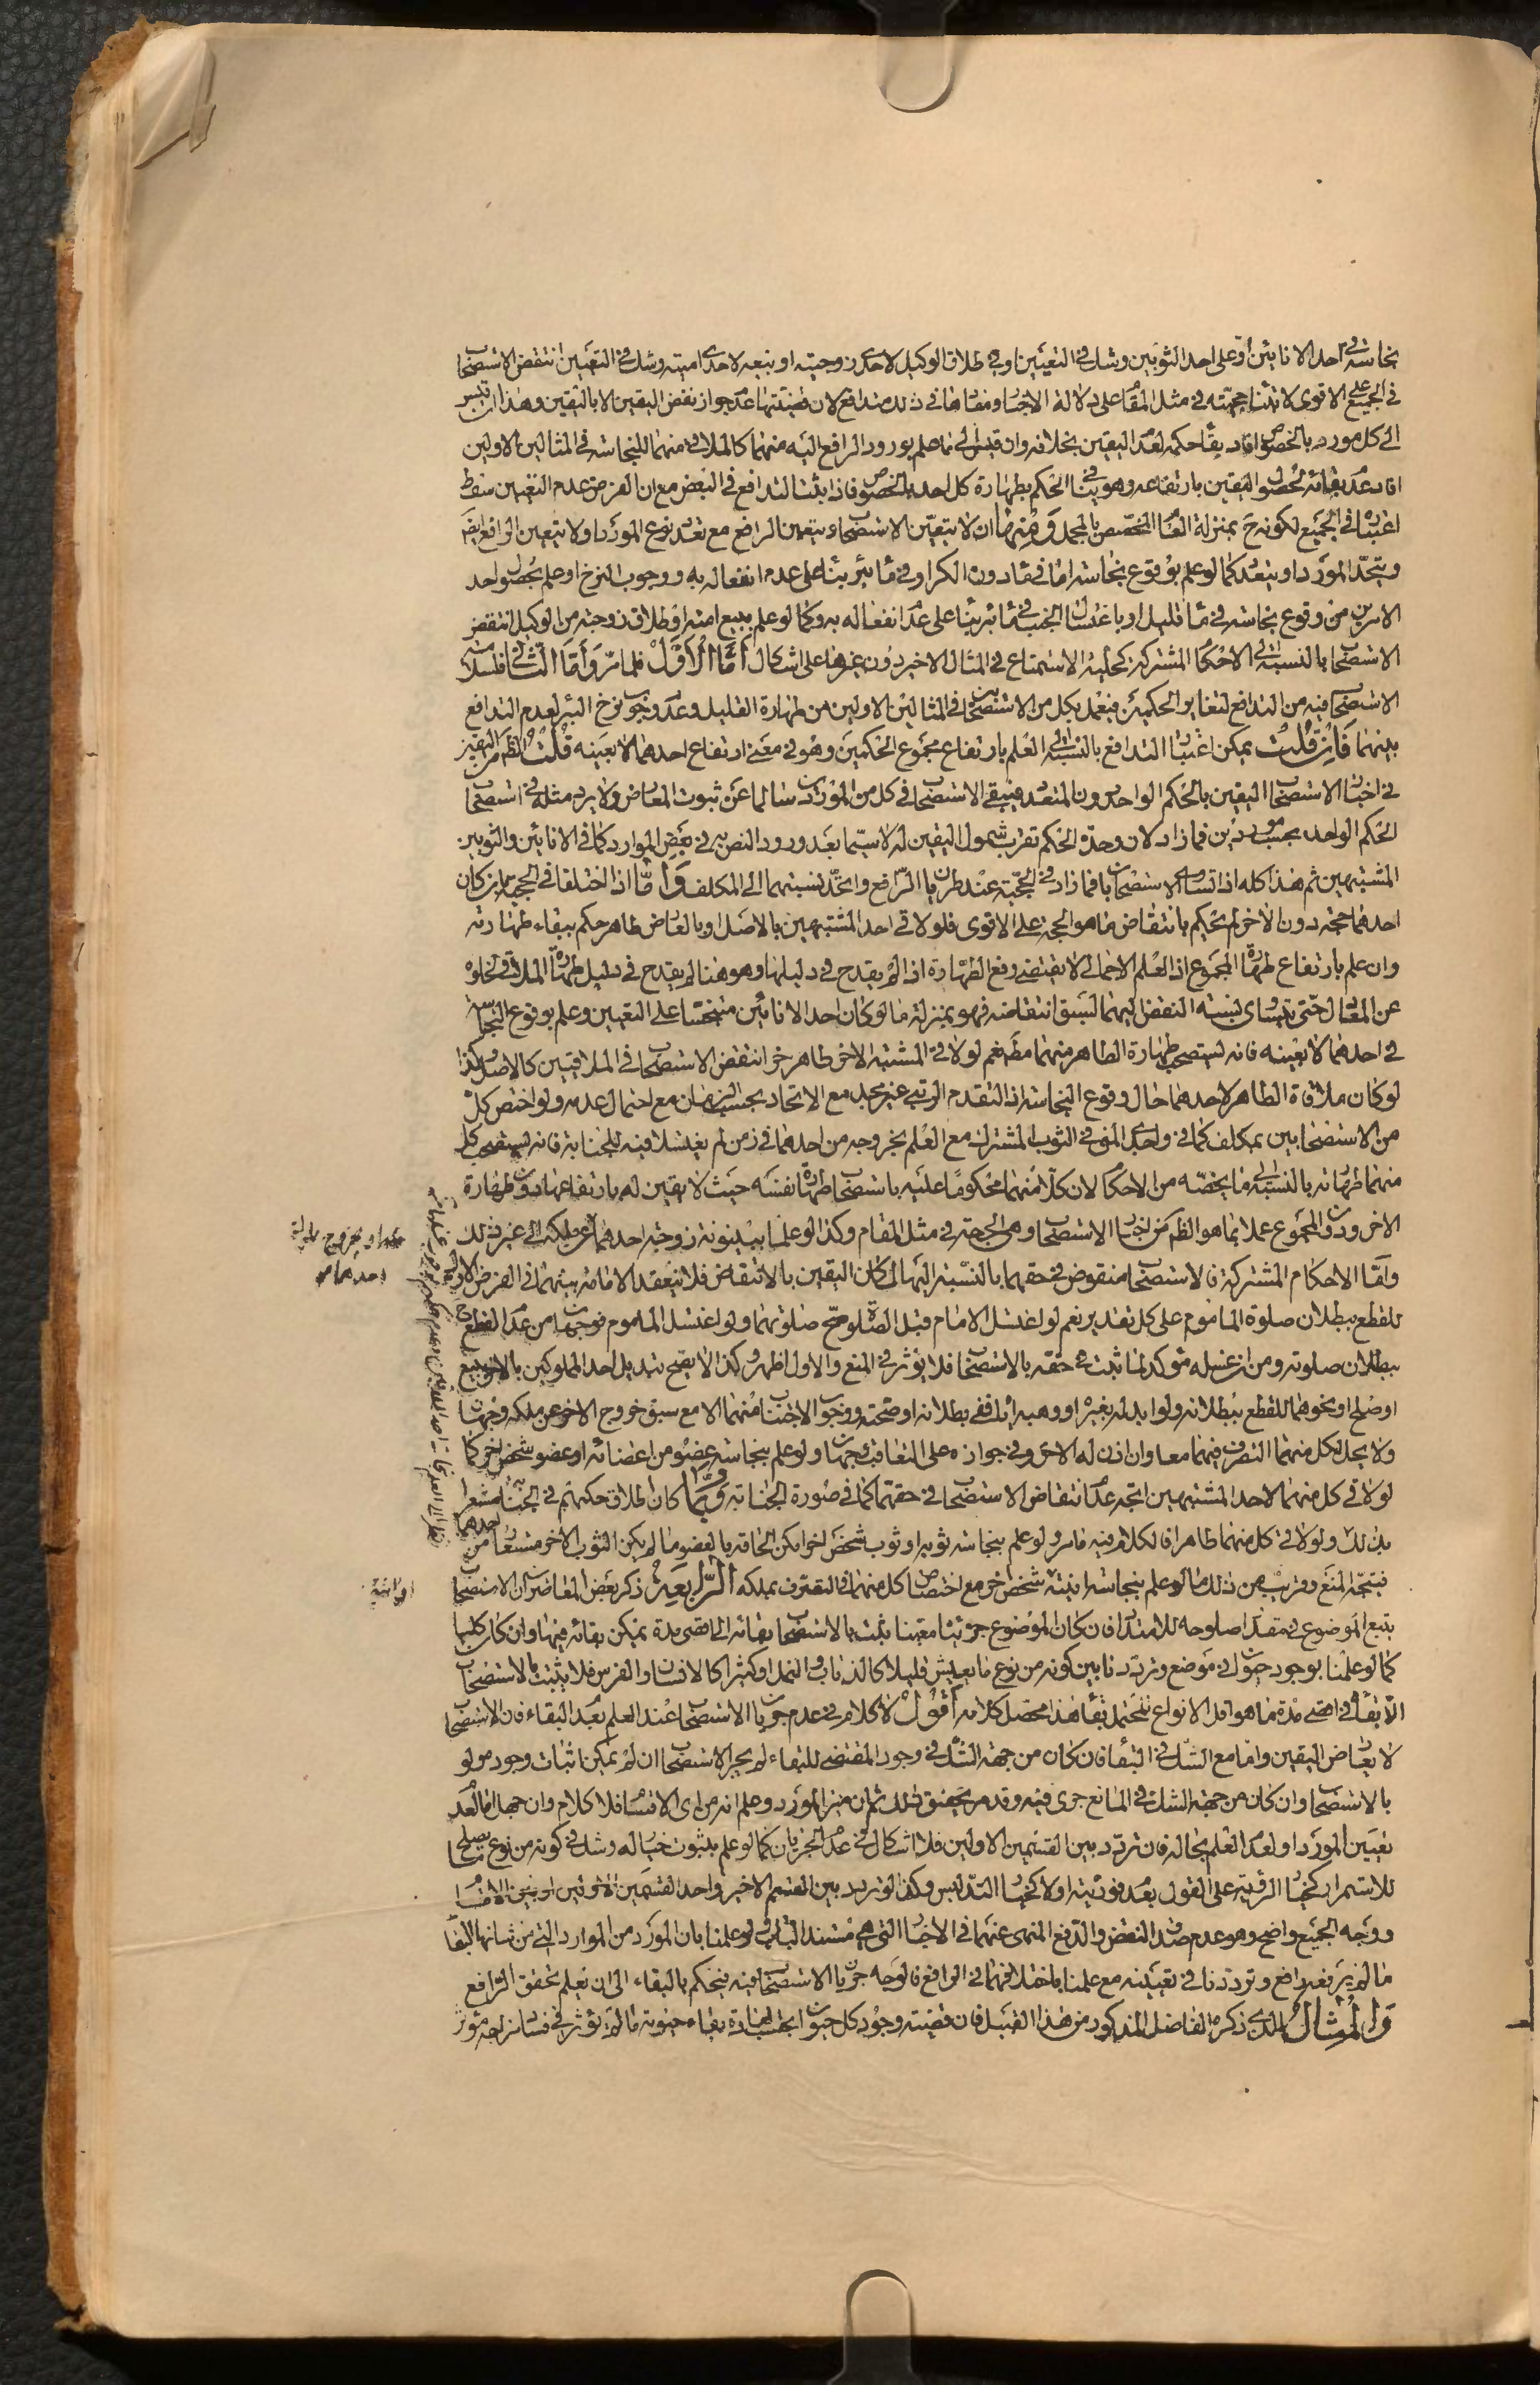 نجاسة في احد الانائين او على احد الثوبين وشك في التعيين او في طلاق الوكيل لاحدى زوجيته او بيعه لاحدى امتيه وشك في التعيين انتقض الاستصحاب
في الجميع على الاقوى لابتناء حجيته في مثل المقام على دلالة الاخبار ومفادها في ذلك متدافع لان قضيتها عدم جواز نقض اليقين الا باليقين وهذا ان قيس
الى كل مورد بالخصوص افاد بقاء حكمه لعدم اليقين بخلافه وان قيس الى ما علم بورود الرافع اليه منهما كالملاقي منهما للنجاسة في المثالين الاولين
افاد عدم بقائه لحصول اليقين بارتفاعه وهو ينافي الحكم بطهارة كل احد بالخصوص فاذا ثبت التدافع في البعض مع ان الفرض عدم التعيين سقط
اعتباره في الجميع لكونه ح بمنزلة العام المخصص بالمجمل ومنها ان لا يتعين الاستصحاب ويتعين الرافع مع تعدد نوع المورد او لا يتعين الرافع ايضا
ويتحد المورد او يتعدد كما لو علم بوقوع نجاسة اما في ماء دون الكر او في ماء بئر بناء على عدم انفعاله به ووجوب النزح او علم بحصول احد
الامرين من وقوع نجاسة في ماء قليل او باغتسال الجنب في ماء بئر بناء على عدم انفعاله به وكما لو علم ببيع امته او طلاق زوجته من الوكيل انتقض
الاستصحاب بالنسبة الى الاحكام المشتركة كحلية الاستمتاع في المثال الاخير دون غيرها على اشكال اما الاول فلما مر واما الثاني فلسلامة
الاستصحاب فيه من التدافع لتغاير الحكمين فيعمل بكل من الاستصحابين في المثالين الاولين من طهارة القليل وعدم وجوب نزح البئر لعدم التدافع
بينهما فان قلت يمكن اعتبار التدافع بالنسبة الى العلم بارتفاع مجموع الحكمين وهو في معنى ارتفاع احدهما لا بعينه قلت الظ من اليقين
في اخبار الاستصحاب اليقين بالحكم الواحد دون المتعدد فيبقى الاستصحاب في كل من الموردين سالما عن ثبوت المعارض ولا يرد مثله في استصحاب
الحكم الواحد بحسب موردين فما زاد لان وحدة الحكم تقرب شمول اليقين له لا سيما بعد ورود النص به في بعض الموارد كما في الانائين والثوبين
المشتبهين ثم هذا كله اذا تساوى الاستصحابان فما زاد في الحجية عند طريان الرافع واتحد نسبتهما الى المكلف واما اذا اختلفا في الحجية بان كان
احدهما حجة دون الاخر لم يحكم بانتقاض ما هو الحجة على الاقوى فلو لاقى احد المشتبهين بالاصل او بالعارض طاهر حكم ببقاء طهارته
وان علم بارتفاع طهارة المجموع اذ العلم الاجمالي لا يقتضي رفع الطهارة اذا لم يقدح في دليلها وهو هنا لم يقدح في دليل طهارة الملاقي لخلوه
عن المعارض حتى يتساوى نسبة النقض اليهما لسبق انتقاضه فهو بمنزلة ما لو كان احد الانائين متنجسا على التعيين وعلم بوقوع النجاسة
في احدهما لا بعينه فانه يستصحب طهارة الطاهر منهما مطلقا نعم لو لاقى المشتبه الاخر طاهر اخر انتقض الاستصحاب في الملاقيين كالاصل وكذا
لو كان ملاقاة الطاهر لاحدهما حال وقوع النجاسة اذ التقدم الرتبي غير مجد مع الاتحاد بحسب الزمان مع احتمال عدمه ولو اختص كل
من الاستصحابين بمكلف كما في واجدي المني في الثوب المشترك مع العلم بخروجه من احدهما في زمن لم يغتسلا فيه للجنابة فانه يستصحب كل
منهما طهارته بالنسبة الى ما يخصه من الاحكام لان كلا منهما محكوما عليه باستصحاب طهارة نفسه حيث لا يقين له بارتفاعها دون طهارة
الاخر ودون المجموع عملا بما هو الظ من اخبار الاستصحاب وهي الحجة في مثل المقام وكذا لو علما ببينونة زوجة احدهما او عن ملكه الى غير ذلك
واما الاحكام المشتركة فالاستصحاب منقوض في حقهما بالنسبة اليها لمكان اليقين بالانتقاض فلا تنعقد الامامة بينهما في الفرض الاول
للقطع ببطلان صلوة الماموم على كل تقدير نعم لو اغتسل الامام قبل الصلوة صح صلوتهما ولو اغتسل الماموم فوجهان من عدم القطع
ببطلان صلوته ومن ان غسله مؤكد لما ثبت في حقه بالاستصحاب فلا يؤثر في المنع والاول اظهر وكذا لا يصح تبديل احد المملوكين بالاخر ببيع
او صلح او نحوهما للقطع ببطلانه ولو ابدله بغيره او وهبه اياه ففي بطلانه او صحته ووجوب الاجتناب منهما الا مع سبق خروج الاخر عن ملكه وجهان
ولا يحل لكل منهما التصرف فيهما معا وان اذن له الاخر وفي جوازه على التعاقب وجهان ولو علم بنجاسة عضو من اعضائه او عضو شخص اخر كما
لو لاقى كل منهما لاحد المشتبهين اتجه عدم انتقاض الاستصحاب في حقهما كما في صورة الجنابة وربما كان اطلاق حكمهم في الجنابة مشعرا
بذلك ولو لاقى كل منهما طاهرا فالكلام فيه ما مر ولو علم بنجاسة ثوبه او ثوب شخص اخر امكن الحاقه بالعضو ما لم يكن الثوب الاخر مستعارا من احدهما
فيتجه المنع وقريب من ذلك ما لو علم بنجاسة انيته شخص اخر مع اختصاص كل منهما في التصرف بملكه الرابعة ذكر بعض المعاصرين ان الاستصحاب
يتبع الموضوع في مقدار صلوحه للامتداد فان كان الموضوع جزئيا معينا يثبت بالاستصحاب بقائه الى اقصى مدة يمكن بقائه فيها وان كان كليا
كما لو علمنا بوجود حيوان في موضع وترددنا بين كونه من نوع ما يعيش قليلا كالذباب والنمل او كثيرا كالانسان والفرس فلا يثبت بالاستصحاب
الا بقاؤه في اقصى مدة ما هو اقل الانواع المحتمل بقاء هذا محصل كلامه اقول لا كلام في عدم جريان الاستصحاب عند العلم بعدم البقاء فان الاستصحاب
لا يعارض اليقين واما مع الشك في البقاء فان كان من جهة الشك في وجود المقتضي للبقاء لم يجر الاستصحاب ان لم يمكن اثبات وجوده ولو
بالاستصحاب وان كان من جهة الشك في المانع جرى فيه وقد مر تحقيق ذلك ثم ان ميز المورد وعلم انه من اي الاقسام فلا كلام وان جهل اما لعدم
تعيين المورد او لعدم العلم بحاله فان تردد بين القسمين الاولين فلا اشكال في عدم الجريان كما لو علم بثبوت خيار له وشك في كونه من نوع يصلح
للاستمرار كخيار الرؤية على القول بعدم فوريته او لا كخيار التدليس وكذا لو تردد بين القسم الاخير واحد القسمين الاولين او بين الاقسام
ووجه الجميع واضح وهو عدم صدق النقض والدفع المنهي عنهما في الاخبار التي هي مستند الباب ولو علمنا بان المورد من الموارد التي من شانها البقاء
ما لم يرفعه رافع وترددنا في تعيينه مع علمنا باختلافهما في الرافع فالوجه جريان الاستصحاب فيه فيحكم بالبقاء الى ان نعلم تحقق الرافع
والمثال الذي ذكره الفاضل المذكور من هذا القبيل فان قضيته وجود كل حيوان بقاء حيوته ما لم يؤثر في فساد مزاجه مؤثر
او بخروج
احدهما
او انية